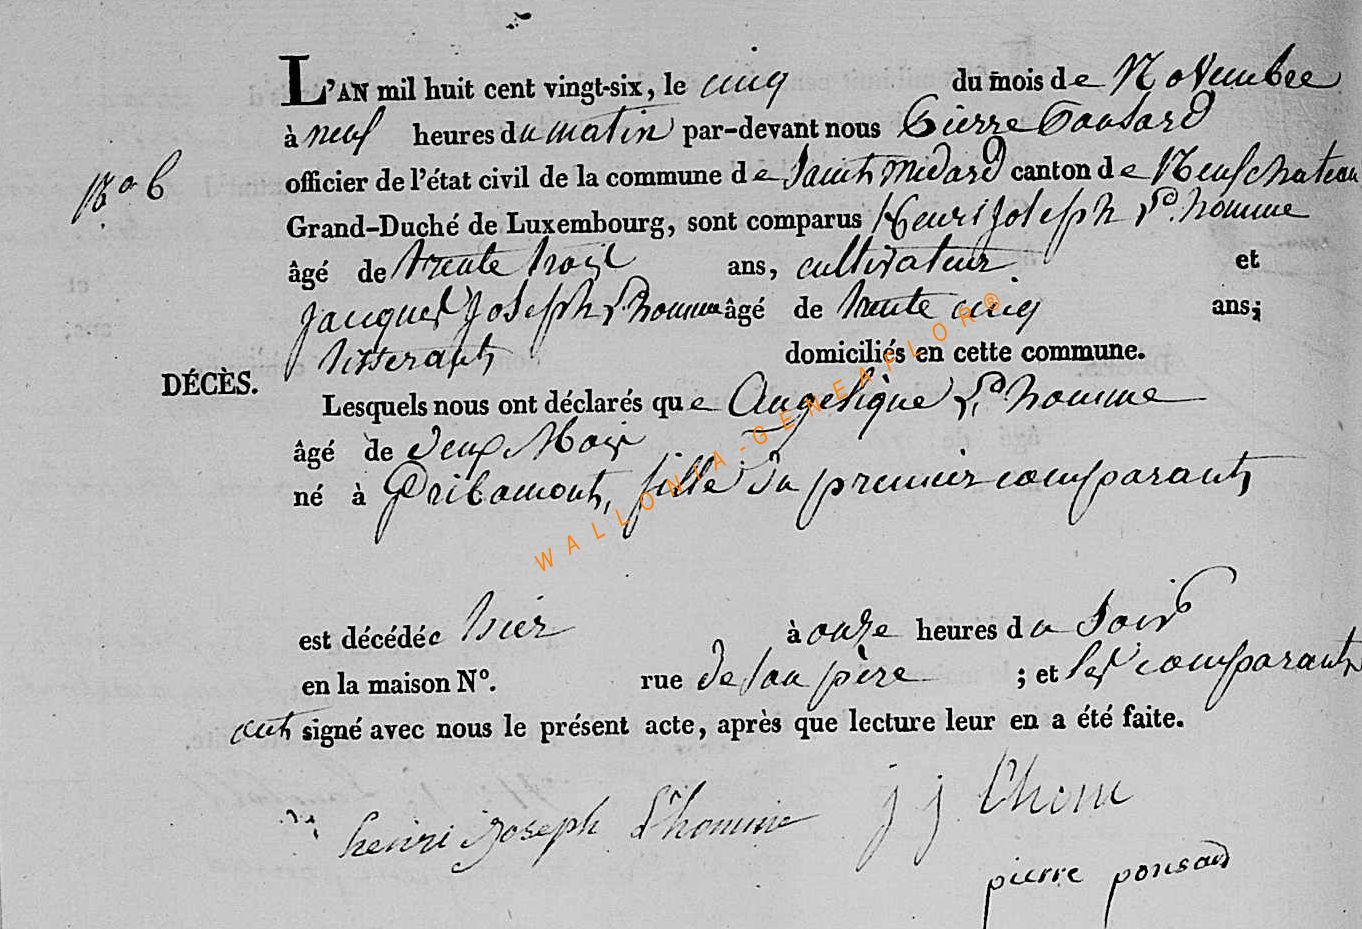 L'AN mil huit cent vingt-six, le cinq du mois de Novembre
à neuf heures du matin par-devant nous Pierre Ponsard
officier de l'état civil de la commune de Saint Médard canton de Neufchateau
No 6
Grand-Duché de Luxembourg, sont comparus Henri Joseph L'homme
âgé de trente trois ans, cultivateur et
Jacques Joseph L'homme âgé de trente cinq ans;
tisserant domiciliés en cette commune.
DÉCÈS.
Lesquels nous ont déclarés que Angelique L'homme
âgé de deux Mois
né à Gribamont, fille du premier comparant
est décédée hier à onze heures du Soir
en la maison No. rue de son père ; et les comparants
ont signé avec nous le présent acte, après que lecture leur en a été faite.
henri joseph L'homme j j Lhome
pierre ponsard
WALLONIA-GENEAFLOR®